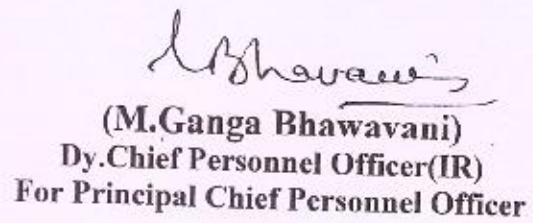 (M.Ganga Bhawavani)
Dy.Chief Personnel Officer(IR)
For Principal Chief Personnel Officer